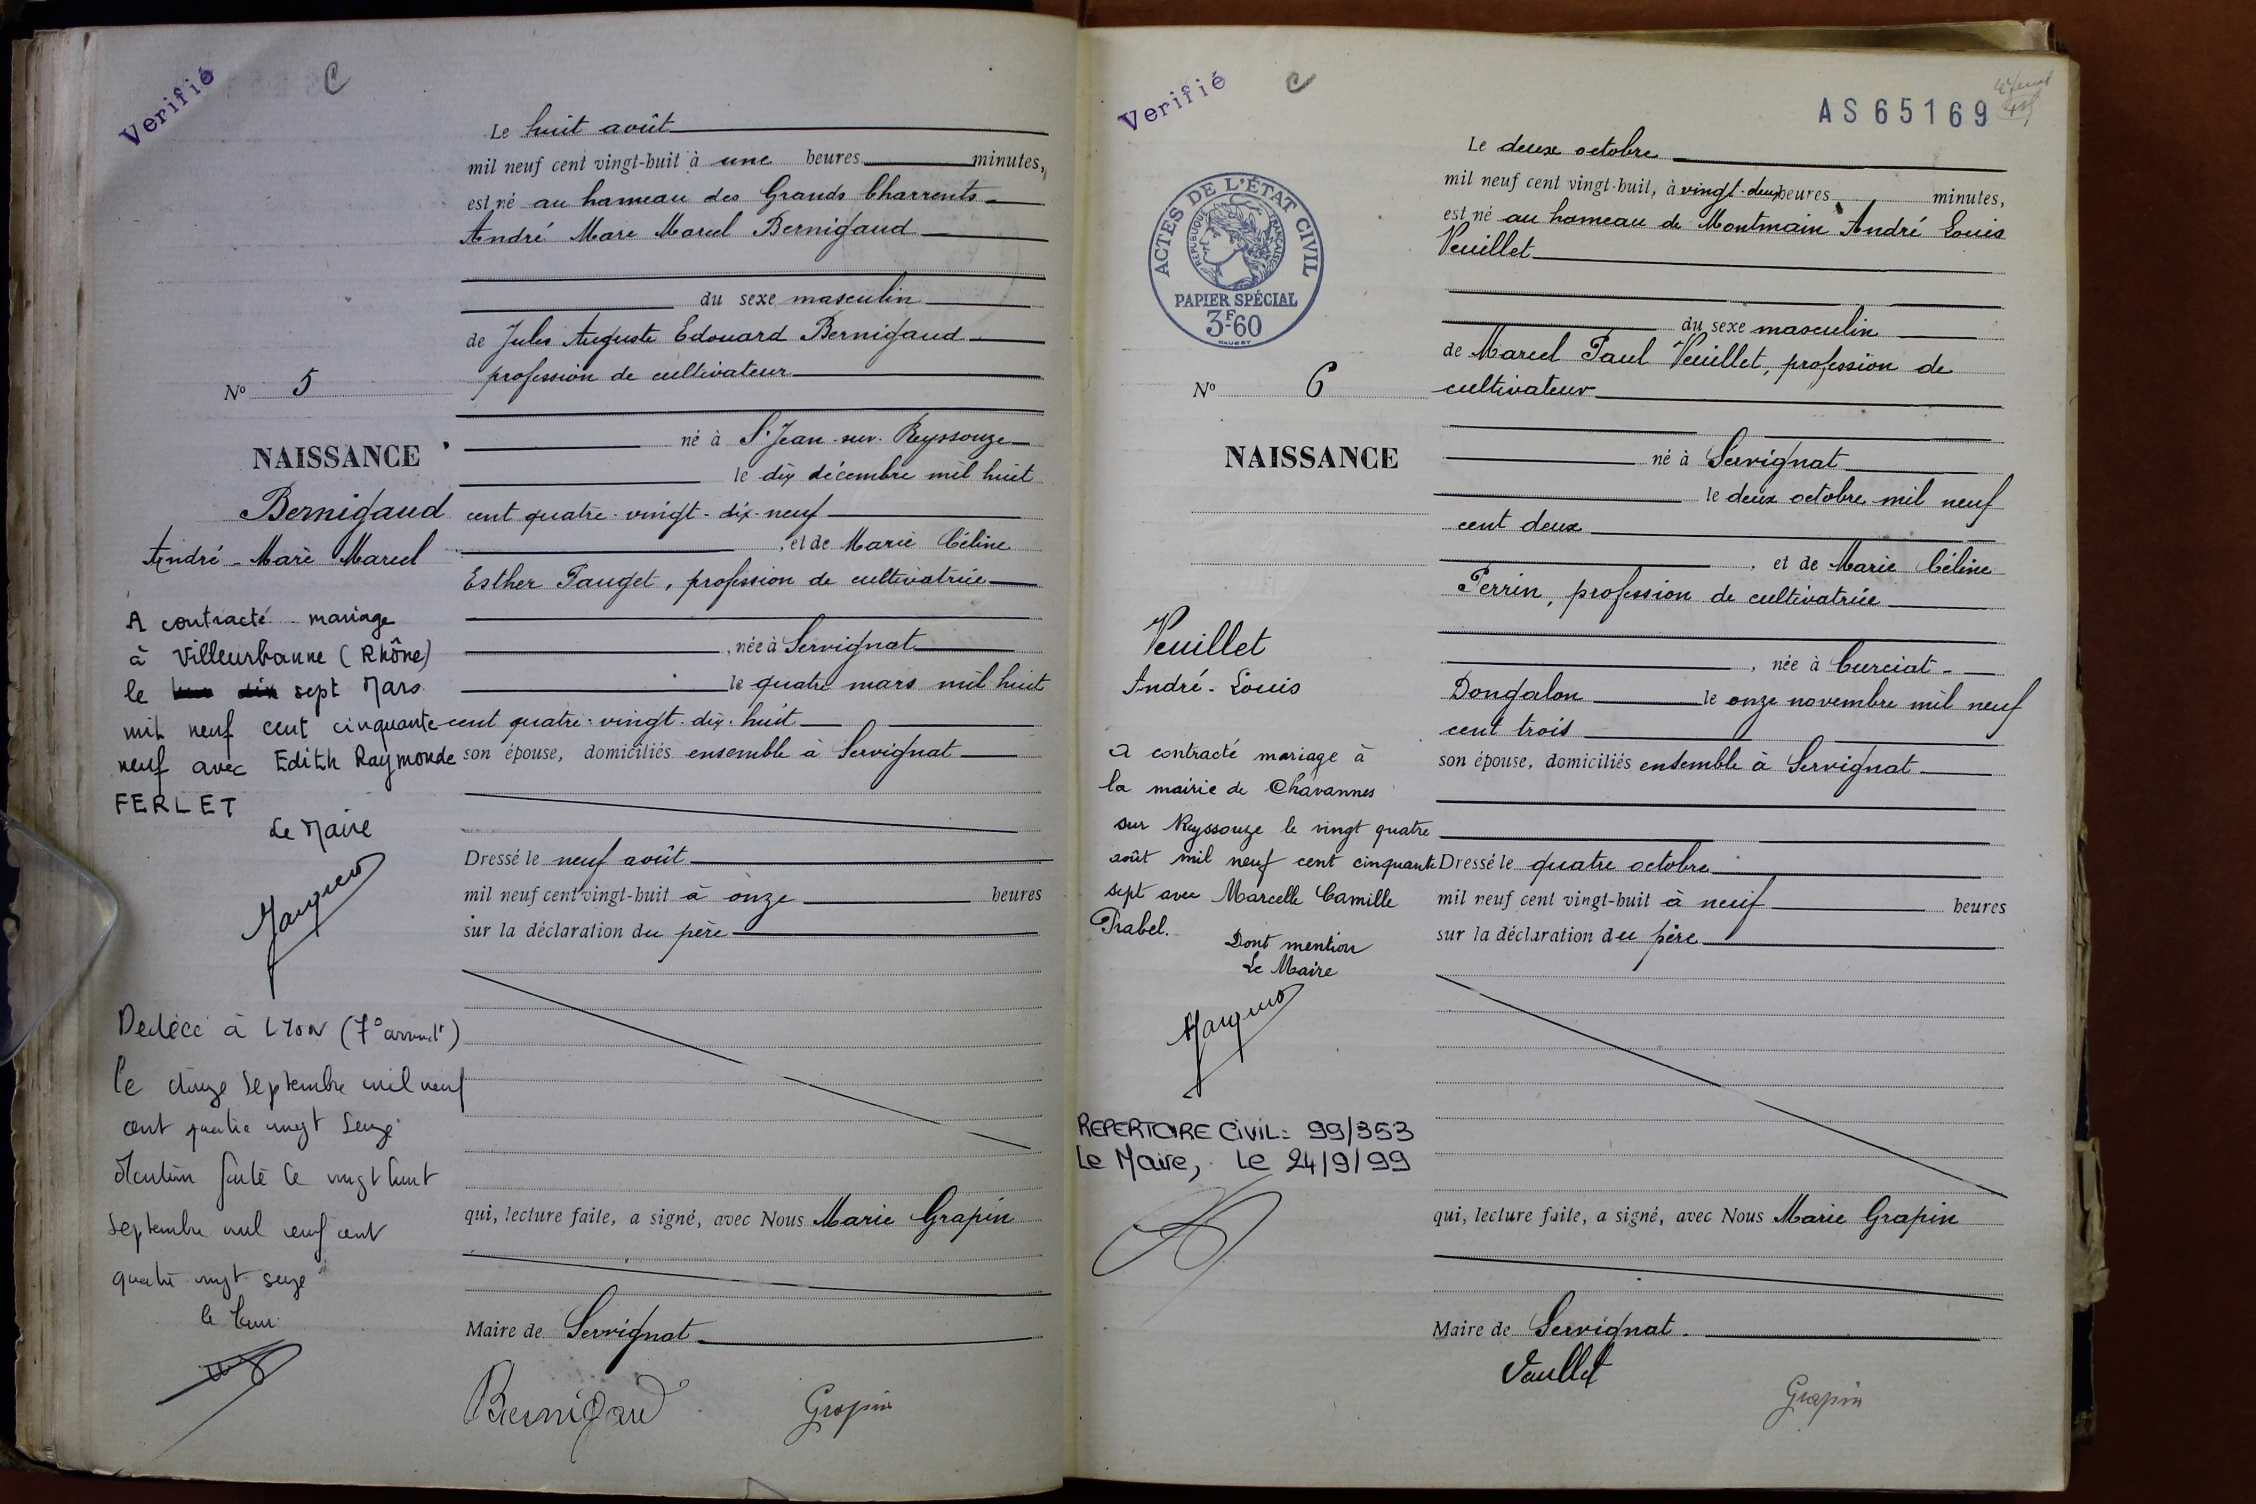 Verifié
C
Le huit août
mil neuf cent vingt-huit à une heures minutes,
est né au hameau des Grands Charrents
André Marc Marcel Bernigaud
du sexe masculin
de Jules Auguste Edouard Bernigaud
profession de cultivateur
né à St Jean-sur-Reyssouze
le dix décembre mil huit
cent quatre-vingt-dix-neuf
, et de Marie Céline
Esther Pauget, profession de cultivatrice
, née à Servignat
le quatre mars mil huit
cent quatre-vingt-dix-huit
son épouse, domiciliés ensemble à Servignat
Dressé le neuf août
mil neuf cent vingt-huit à onze heures
sur la déclaration du père
qui, lecture faite, a signé, avec Nous Marie Grapin
Maire de Servignat
Bernigaud Grapin
No 5
NAISSANCE
Bernigaud
André-Marc Marcel
A contracté mariage
à Villeurbanne (Rhône)
le dix sept Mars
mil neuf cent cinquante
neuf avec Edith Raymonde
FERLET
Le Maire
Décédé à LYON (7°arrondt)
le douze septembre mil neuf
cent quatre vingt seize
Mention faite le vingt huit
septembre mil neuf cent
quatre vingt seize
Verifié
C
AS65169
ACTES DE L'ÉTAT CIVIL
RÉPUBLIQUE FRANÇAISE
PAPIER SPÉCIAL
3F.60
Le deux octobre
mil neuf cent vingt-huit, à vingt-deux heures minutes,
est né au hameau de Montmain André Louis
Veuillet
du sexe masculin
de Marcel Paul Veuillet, profession de
cultivateur
né à Servignat
le deux octobre mil neuf
cent deux
, et de Marie Céline
Perrin, profession de cultivatrice
, née à Curciat-
Dongalon le onze novembre mil neuf
cent trois
son épouse, domiciliés ensemble à Servignat
Dressé le quatre octobre
mil neuf cent vingt-huit à neuf heures
sur la déclaration du père
qui, lecture faite, a signé, avec Nous Marie Grapin
Maire de Servignat.
Veuillet
Grapin
No 6
NAISSANCE
Veuillet
André-Louis
A contracté mariage à
la mairie de Chavannes
sur Reyssouze le vingt quatre
août mil neuf cent cinquante
sept avec Marcelle Camille
Prabel.
Dont mention
Le Maire
REPERTOIRE CIVIL: 99/353
Le Maire, le 24/9/99